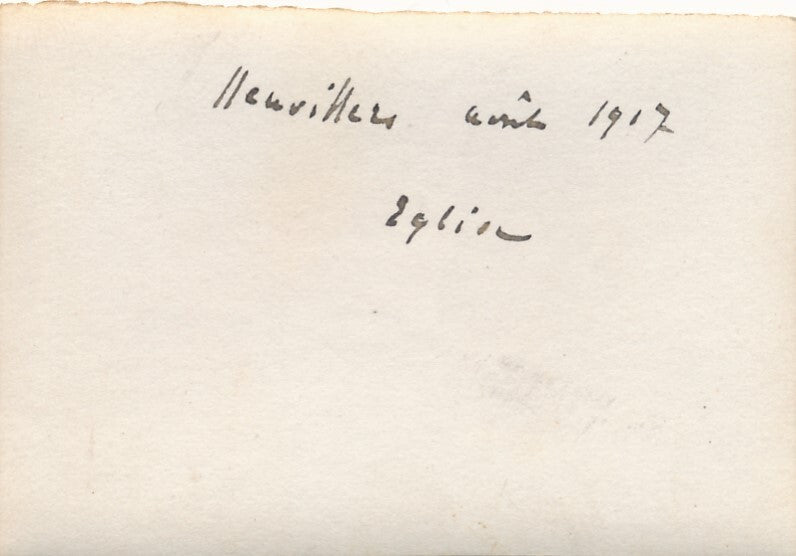 Neuvillers août 1917
Eglise